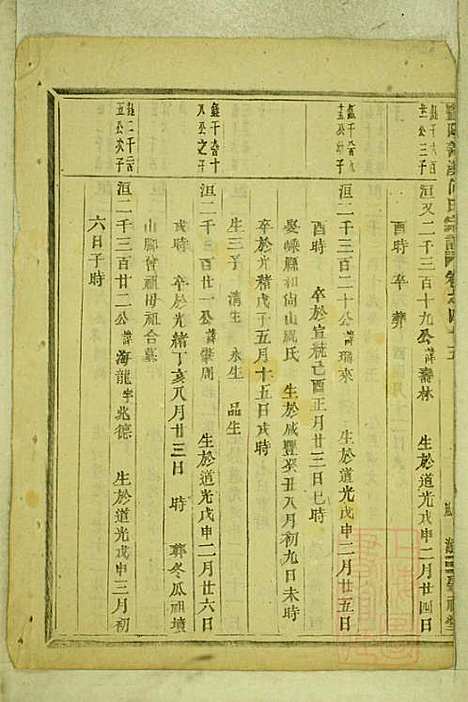 洹又二千三百十九公諱壽林 生於道光戊申二月廿四日
酉時 卒 葬
洹二千三百二十公諱瑞來 生於道光戊申二月廿五日
酉時 卒於宣統己酉正月廿三日巳時
娶嵊縣和尚山周氏 生於咸豐癸丑八月初九日未時
卒於光緒戊子五月十五日戌時
生三子 清生 永生 品生
洹二千三百廿一公諱肇周 生於道光戊申二月廿六日
戌時 卒於光緒丁亥八月廿三日 時 葬冬瓜祖墳
山腳曾祖母祖合墓
五公次子
洹二千三百廿二公諱海龍字兆德 生於道光戊申三月初
六日子時